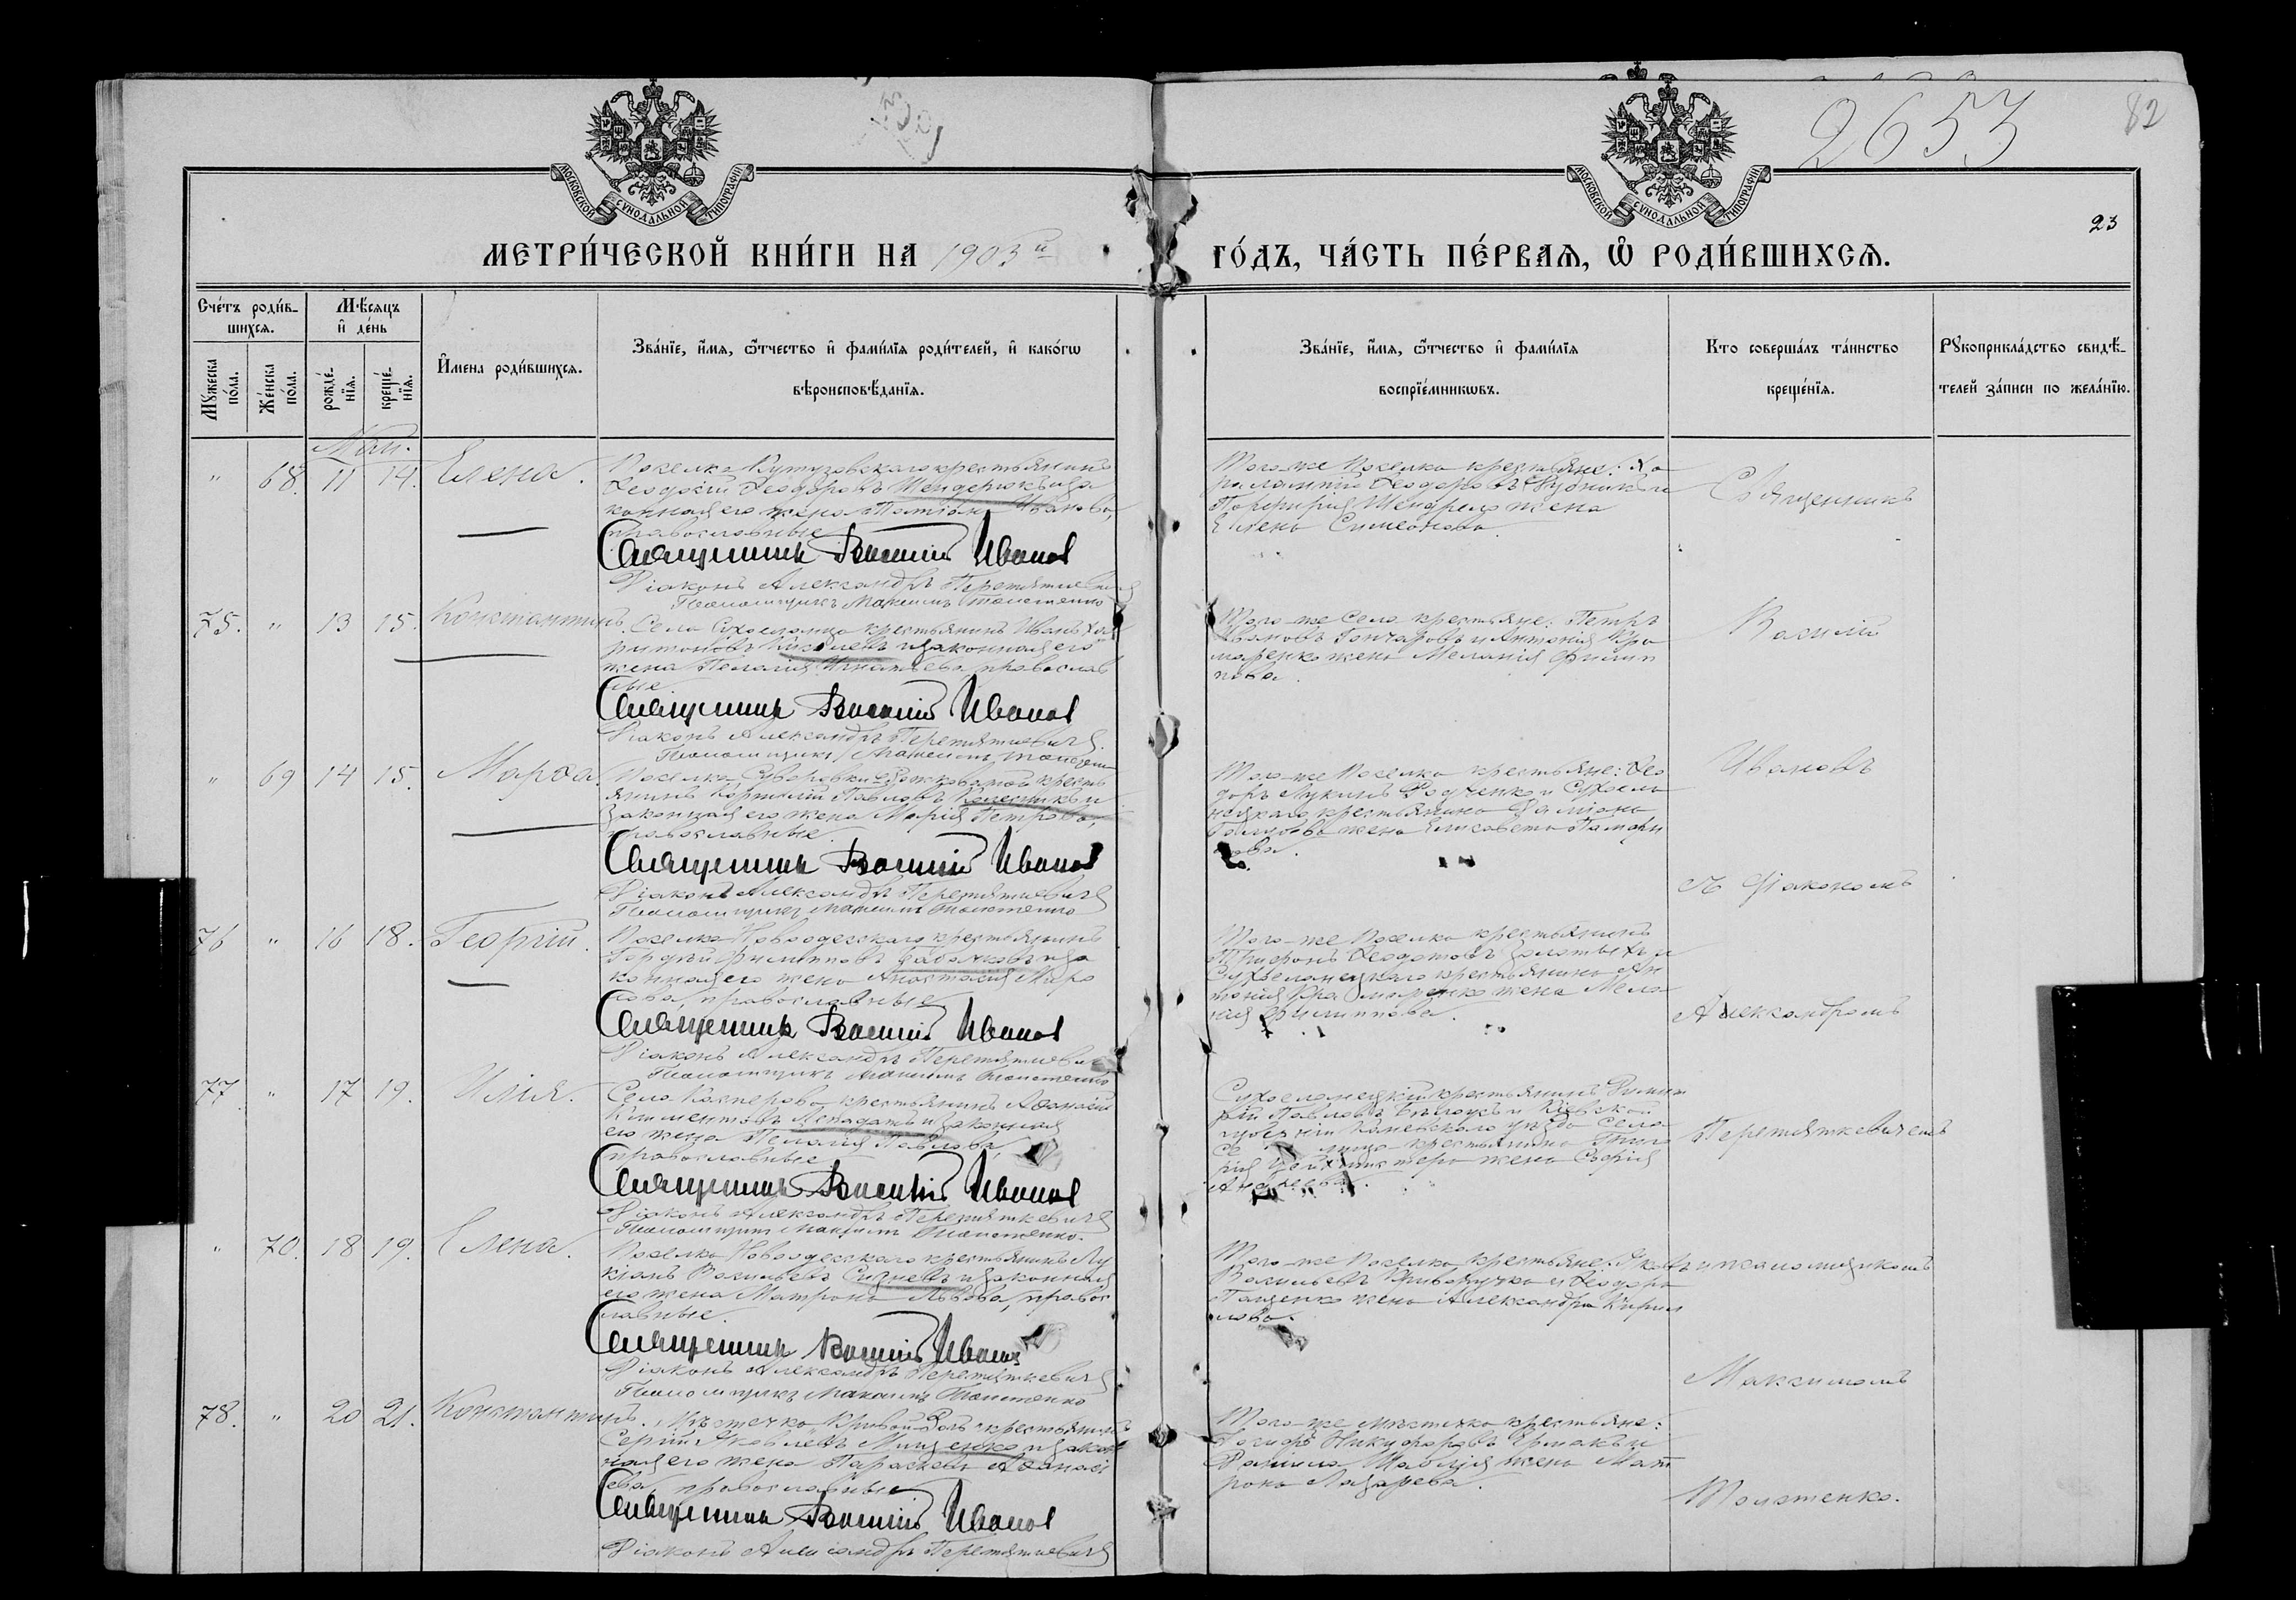 2653
82
МОСКОВСКОЙ СѴНОДАЛЬНОЙ ТИПОГРАФІИ
МОСКОВСКОЙ СѴНОДАЛЬНОЙ ТИПОГРАФІИ
23
МЕТРИ́ЧЕСКОЙ КНИ́ГИ НА 1903й
ГО́ДЪ, ЧА́СТЬ ПЕ́РВАѦ, Ѽ РОДИ́ВШИХСѦ.
Сче́тъ роди́в-
шихсѧ.
Мѣ́сѧцъ
и҆ де́нь
Мꙋжеска по́ла.
Же́нска по́ла.
рожде́-нїѧ.
креще́-нїѧ.
И҆мена роди́вшихсѧ.
Зва́нїе, и҆́мѧ, ѻ҆́тчество и҆ фами́лїѧ роди́телей, и҆ како́гѡ
вѣроисповѣ́данїѧ.
Зва́нїе, и҆́мѧ, ѻ҆́тчество и҆ фами́лїѧ
воспрїе́мникѡвъ.
Кто соверша́лъ та́инство
креще́нїѧ.
Рꙋкоприкла́дство свидѣ́-
телей за́писи по жела́нїю.
Май.
" 68. 11 14. Елена.
Поселка Кутузовскаго крестьянинъ
Ѳеодосій Ѳеодоровъ Шендерюкъ и за
конная его жена Иванова,
православные
Священникъ Василій Ивановъ
Діаконъ Александръ Перетяткевичъ
Псаломщикъ Максимъ Толстенко
Того-же поселка крестьяне: Ха
рлампій Ѳеодоровъ и
Порфирія жена
Елена Симеонова.
Священникъ
75. " 13 15. Константинъ.
Села Сухоеланца крестьянинъ Иванъ Ха
ритоновъ и законная его
жена Пелагія Игнатьева, православ
ные.
Священникъ Василій Ивановъ
Діаконъ Александръ Перетяткевичъ
Псаломщикъ Максимъ Толстенко
Того-же села крестьяне: Петръ
Ивановъ Гончаровъ и Антонія Кра
маренко жена Меланія Филип
пова.
Василій
" 69 14 15. Марѳа.
Поселка Суворовки крестья
янинъ Корнилій Павловъ Колесникъ и
законная его жена Марія Петрова,
православные
Священникъ Василій Ивановъ
Діаконъ Александръ Перетяткевичъ
Псаломщикъ Максимъ Толстенко
Того-же поселка крестьяне: Ѳео
доръ Лукинъ и Сухоела
нецкаго крестьянина Даміана
жена Елисавета Памфи
лова.
Ивановъ
съ Діакономъ
76 " 16 18. Георгій.
Поселка Новоодесскаго крестьянинъ
Гордѣй Филипповъ и за
конная его жена Анастасія Марко
православные
Священникъ Василій Ивановъ
Діаконъ Александръ Перетяткевичъ
Псаломщикъ Максимъ Толстенко
Того-же поселка крестьянинъ
Трифонъ Ѳеодотовъ Золотыхъ и
Сухоеланецкаго крестьянина Ан
тонія Крамаренко жена Мела
нія Филиппова.
Александромъ
77 " 17 19. Илія.
Села Касперова крестьянинъ Аѳанасій
Климентовъ и законная
его жена Пелагія Павлова,
православные
Священникъ Василій Ивановъ
Діаконъ Александръ Перетяткевичъ
Псаломщикъ Максимъ Толстенко.
Сухоеланецкій крестьянинъ Димит
рій Павловъ Бѣлоусъ и Кіевской
губерніи Каневскаго уѣзда села
крестьянина Григо
рія жена Софія
Андреева.
Перетяткевичемъ
" 70. 18 19. Елена.
Поселка Новоодесскаго крестьянинъ Лу
кіанъ Васильевъ и законная
его жена Матрона Львова, правос
лавные.
Священникъ Василій Ивановъ
Діаконъ Александръ Перетяткевичъ
Псаломщикъ Максимъ Толстенко
Того-же поселка крестьяне:
Васильевъ Криворучко и Ѳеодора
Пащенко жена Александра Кирил
лова.
и псаломщикомъ
Максимомъ
78. " 20 21. Константинъ.
Мѣстечка Кривой-Рогъ крестьянинъ
Сергій Яковлевъ Мищенко и закон
ная его жена Параскева Аѳанась
ева, православные
Священникъ Василій Ивановъ
Діаконъ Александръ Перетяткевичъ
Того-же мѣстечка крестьяне:
Іосифъ Никифоровъ Ермакъ и
Даніила жена Мат
рона Лазарева.
Толстенко.